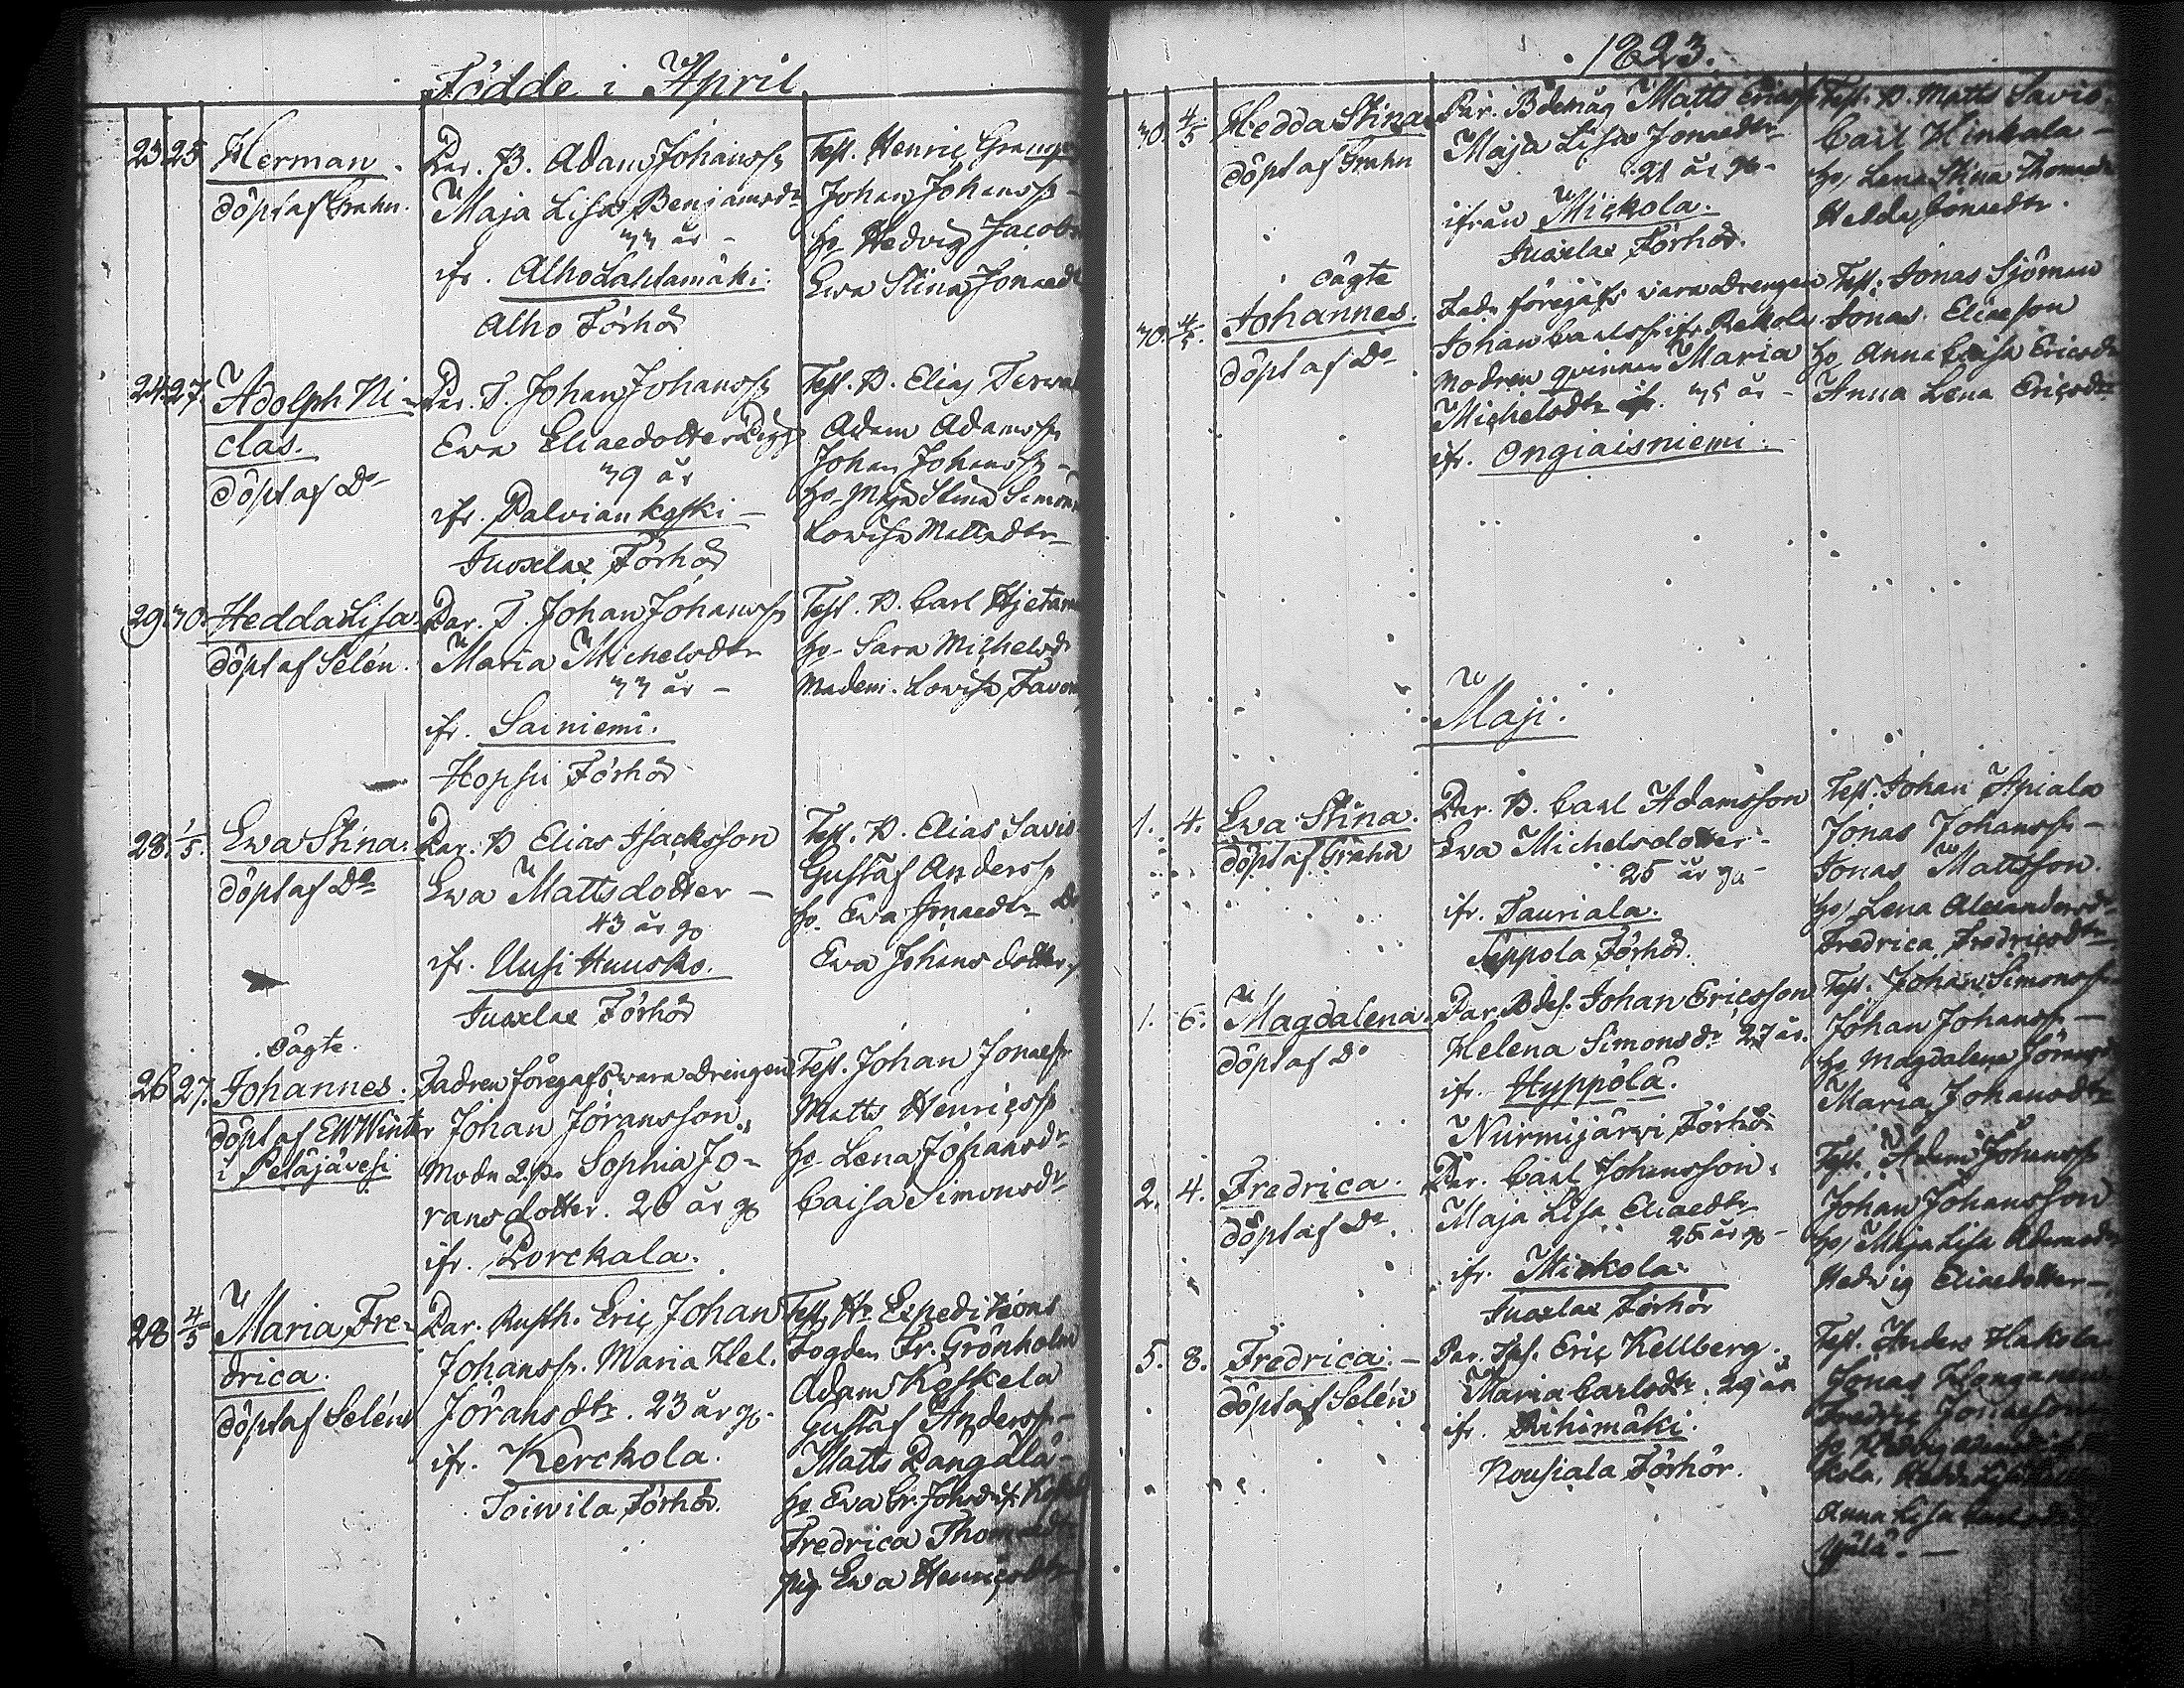 Födde i April
23 25 Herman.
döpt af Grahn.
Par. B. Adam Johanss
Maja Lisa Benjamsdr
33 år -
ifr. Alho Lahtamäki.
Alho Förhör
Test. Henric
Johan Johanss -
ho Hedvig Jacobs
Ewa Stina Jonaedr
24. 27. Adolph Ni-
clas.
döpt af Do
Par. T. Johan Johanss
Ewa Eliaedotter
39 år
ifr. Palviankoski -
Juoxlax Förhör
Test. B. Elias
Adam Adamss
Johan Johanss -
ho Maja Stina Simons
Lowisa Mattsdtr
29 30 Hedda Lisa.
döpt af Selén.
Par. T. Johan Johanss
Maria Michelsdtr
33 år -
ifr. Sainiemi.
Hopsu Förhör
Test. B. Carl
ho Sara Michelsdr
Madem. Lowisa
28. 1/5. Ewa Stina.
döpt af Do
Par. B Elias Isacksson
Ewa Mattsdotter -
43 år g
ifr. Uusi Huusko.
Juoxlax Förhör
Test. B. Elias Savio
Gustaf Anderss
ho Ewa Jonaedtr
Ewa Johans dotter
oägte.
26 27. Johannes.
döpt af EW Winter
i Petäjävesi
Fadren föregafs vara Drengen
Johan Jöransson,
Modn Sophia Jö-
ransdotter. 26 år g
ifr. Porckala.
Test. Johan Jonaess
Matts Henricss
ho Lena Johansdr
Caisa Simonsdr
28 4/5 Maria Fre-
drica.
döpt af Selén
Par. Rusth. Eric Johan
Johanss. Maria Hel.
Jöransdtr. 23 år g.
ifr. Kerckola.
Toiwila Förhör.
Test. Hr Expeditions
Fogden Fr. Grönholm
Adam Keskela
Gustaf Anderss -
Matts
ho Ewa Cr.
Fredrica Thomasdtr
pig. Ewa Henricsdtr
1823.
30. 4/5 Hedda Stina
döpt af Grahn
Par. Matts Ericss
Maja Lisa Jonaedtr
21 år g -
ifrån Mickola.
Juoxlax Förhör.
Test. B. Matts Savio
Carl Hinkala -
ho, Lena Stina Thomasdr
Hedda Jonaedtr.
oägte
30. 4/5. Johannes.
döpt af Do
Fadr föregafs vara Drengen
Johan Carlss ifr. Rekola
Modren qvinnan Maria
Michelsdtr 35 år -
ifr. Ongiaisniemi.
Test. Jonas Sjöman
Jonas Eliaeson
ho Anna Caisa Ericsdr
Anna Lena Ericsdtr
Maji.
1. 4. Ewa Stina.
döpt af Grahn
Par. B. Carl Adamsson
Ewa Michelsdotter -
25 år ga
ifr. Tauriala.
Seppola Förhör.
Test. Johan Apiala
Jonas Johanss -
Jonas Mattsson.
ho, Lena Alexandersdr
Fredrica Fredricsdtr
1. 6. Magdalena.
döpt af Do
Par. Johan Ericsson
Helena Simonsdr 27 år.
ifr. Hyppölä.
Nurmijärvi Förhör
Test. Johan Simonss
Johan Johanss -
ho Magdalena Jöransd
Maria Johansdtr
2. 4. Fredrica.
döpt af Do.
Par. Carl Johansson,
Maja Lisa Eliaedtr
25 år g -
ifr. Mickola.
Juoxlax Förhör
Test. Adam Johanss
Johan Johansson
ho, Maja Lisa Adamsdr
Hedvig Eliaedotter -
5. 8. Fredrica. -
döpt af Selén
Par. Eric Kellberg.
Maria Carlsdtr. 29 år
ifr. Riihimäki.
Rousiala Förhör.
Test. Anders Hakola
Jonas
Fredric Jonaeson
ho Hedvig
kola.
Anna Lisa Carlsdr